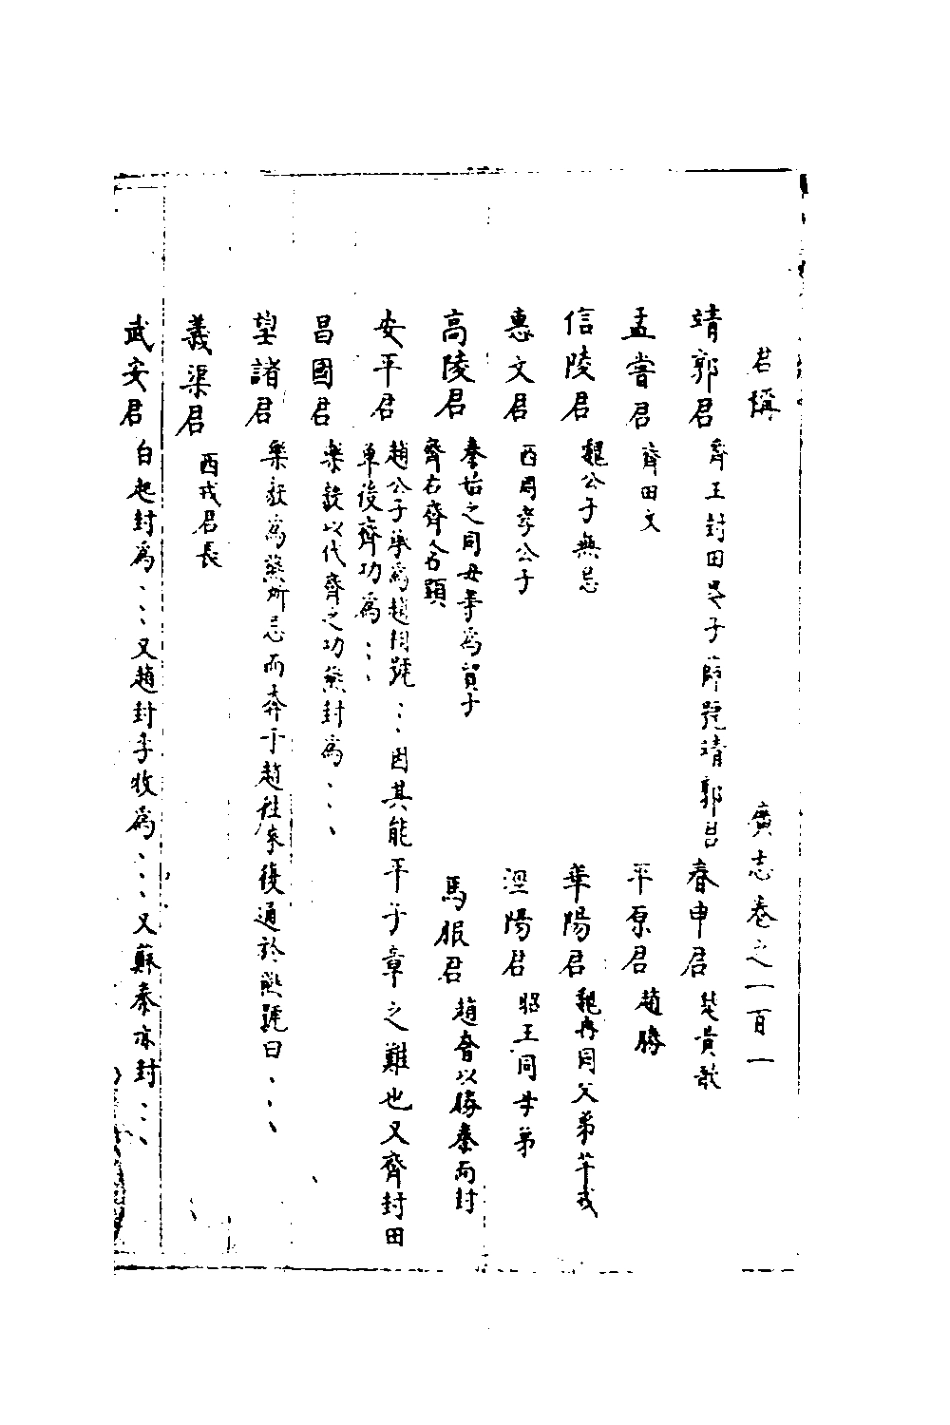 君稱　廣志卷之一百一
靖郭君　齊王封田嬰子薛號靖郭君　春申君　楚黃歇
孟嘗君　齊田文　平原君　趙勝
信陵君　魏公子無忌　華陽君　魏冉同父弟芊戎
惠文君　西周孝公子　涇陽君　昭王同母弟
高陵君　秦始之同母弟為質子
齊右齊令顯　馬服君　趙奢以勝秦而封
安平君　趙公子為趙相號、、、因其能平于章之難也又齊封田
單復齊功為、、、
昌國君　樂毅以代齊之功燕封為、、、
望諸君　樂毅為燕所忌而奔于趙往來復通於燕號曰、、、
義渠君　西戎君長
武安君　白起封為、、、又趙封李牧為、、、又蘇秦亦封、、、